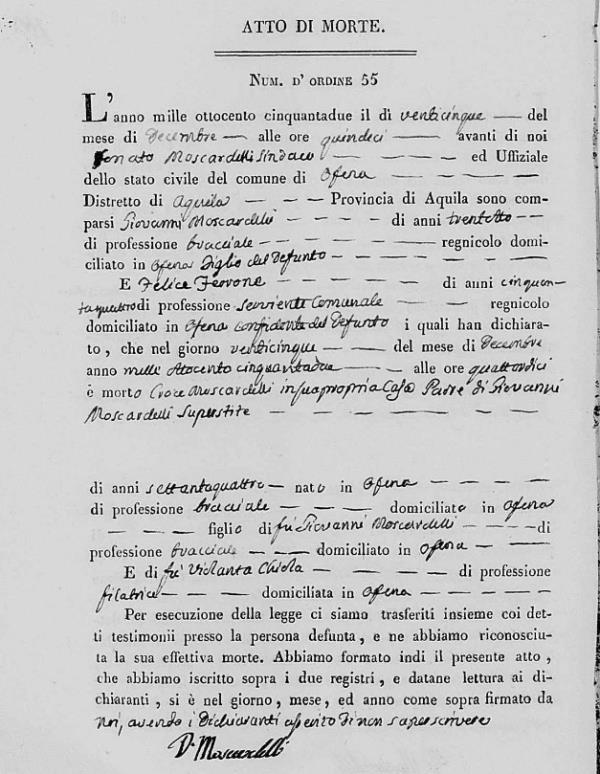 ATTO DI MORTE.
NUM. D' ORDINE 55
L'anno mille ottocento cinquantadue il dì venticinque — del
mese di Decembre — alle ore quindeci — avanti di noi
Donato Moscardelli Sindaco — — — — ed Uffiziale
dello stato civile del comune di Ofena — — — —
Distretto di Aquila — — — Provincia di Aquila sono com-
parsi Giovanni Moscardelli — — — — di anni trentotto — —
di professione bracciale — — — — — — regnicolo domi-
ciliato in Ofena Figlio del Defunto — — — — — —
E Felice Ferrone — — — — — di anni cinquan-
taquattro di professione Serviente Comunale — — — regnicolo
domiciliato in Ofena confidente del Defunto i quali han dichiara-
to , che nel giorno venticinque — — — del mese di Decembre
anno mille Ottocento cinquantadue — — — alle ore quattordici
è morto Croce Moscardelli in sua propria Casa Padre di Giovanni
Moscardelli Superstite — — — — — — — —
di anni settantaquattro — nato in Ofena — — — —
di professione bracciale — — — domiciliato in Ofena
— — — — figlio di fù Giovanni Moscardelli — — — — di
professione bracciale — — — domiciliato in Ofena — —
E di fù Violanta Chiola — — — — di professione
filatrice — — — — domiciliata in Ofena — — — —
Per esecuzione della legge ci siamo trasferiti insieme coi det-
ti testimonii presso la persona defunta, e ne abbiamo riconosciu-
ta la sua effettiva morte. Abbiamo formato indi il presente atto ,
che abbiamo iscritto sopra i due registri , e datane lettura ai di-
chiaranti , si è nel giorno , mese , ed anno come sopra firmato da
noi, avendo i Dichiaranti asserito di non saper scrivere
D. Moscardelli